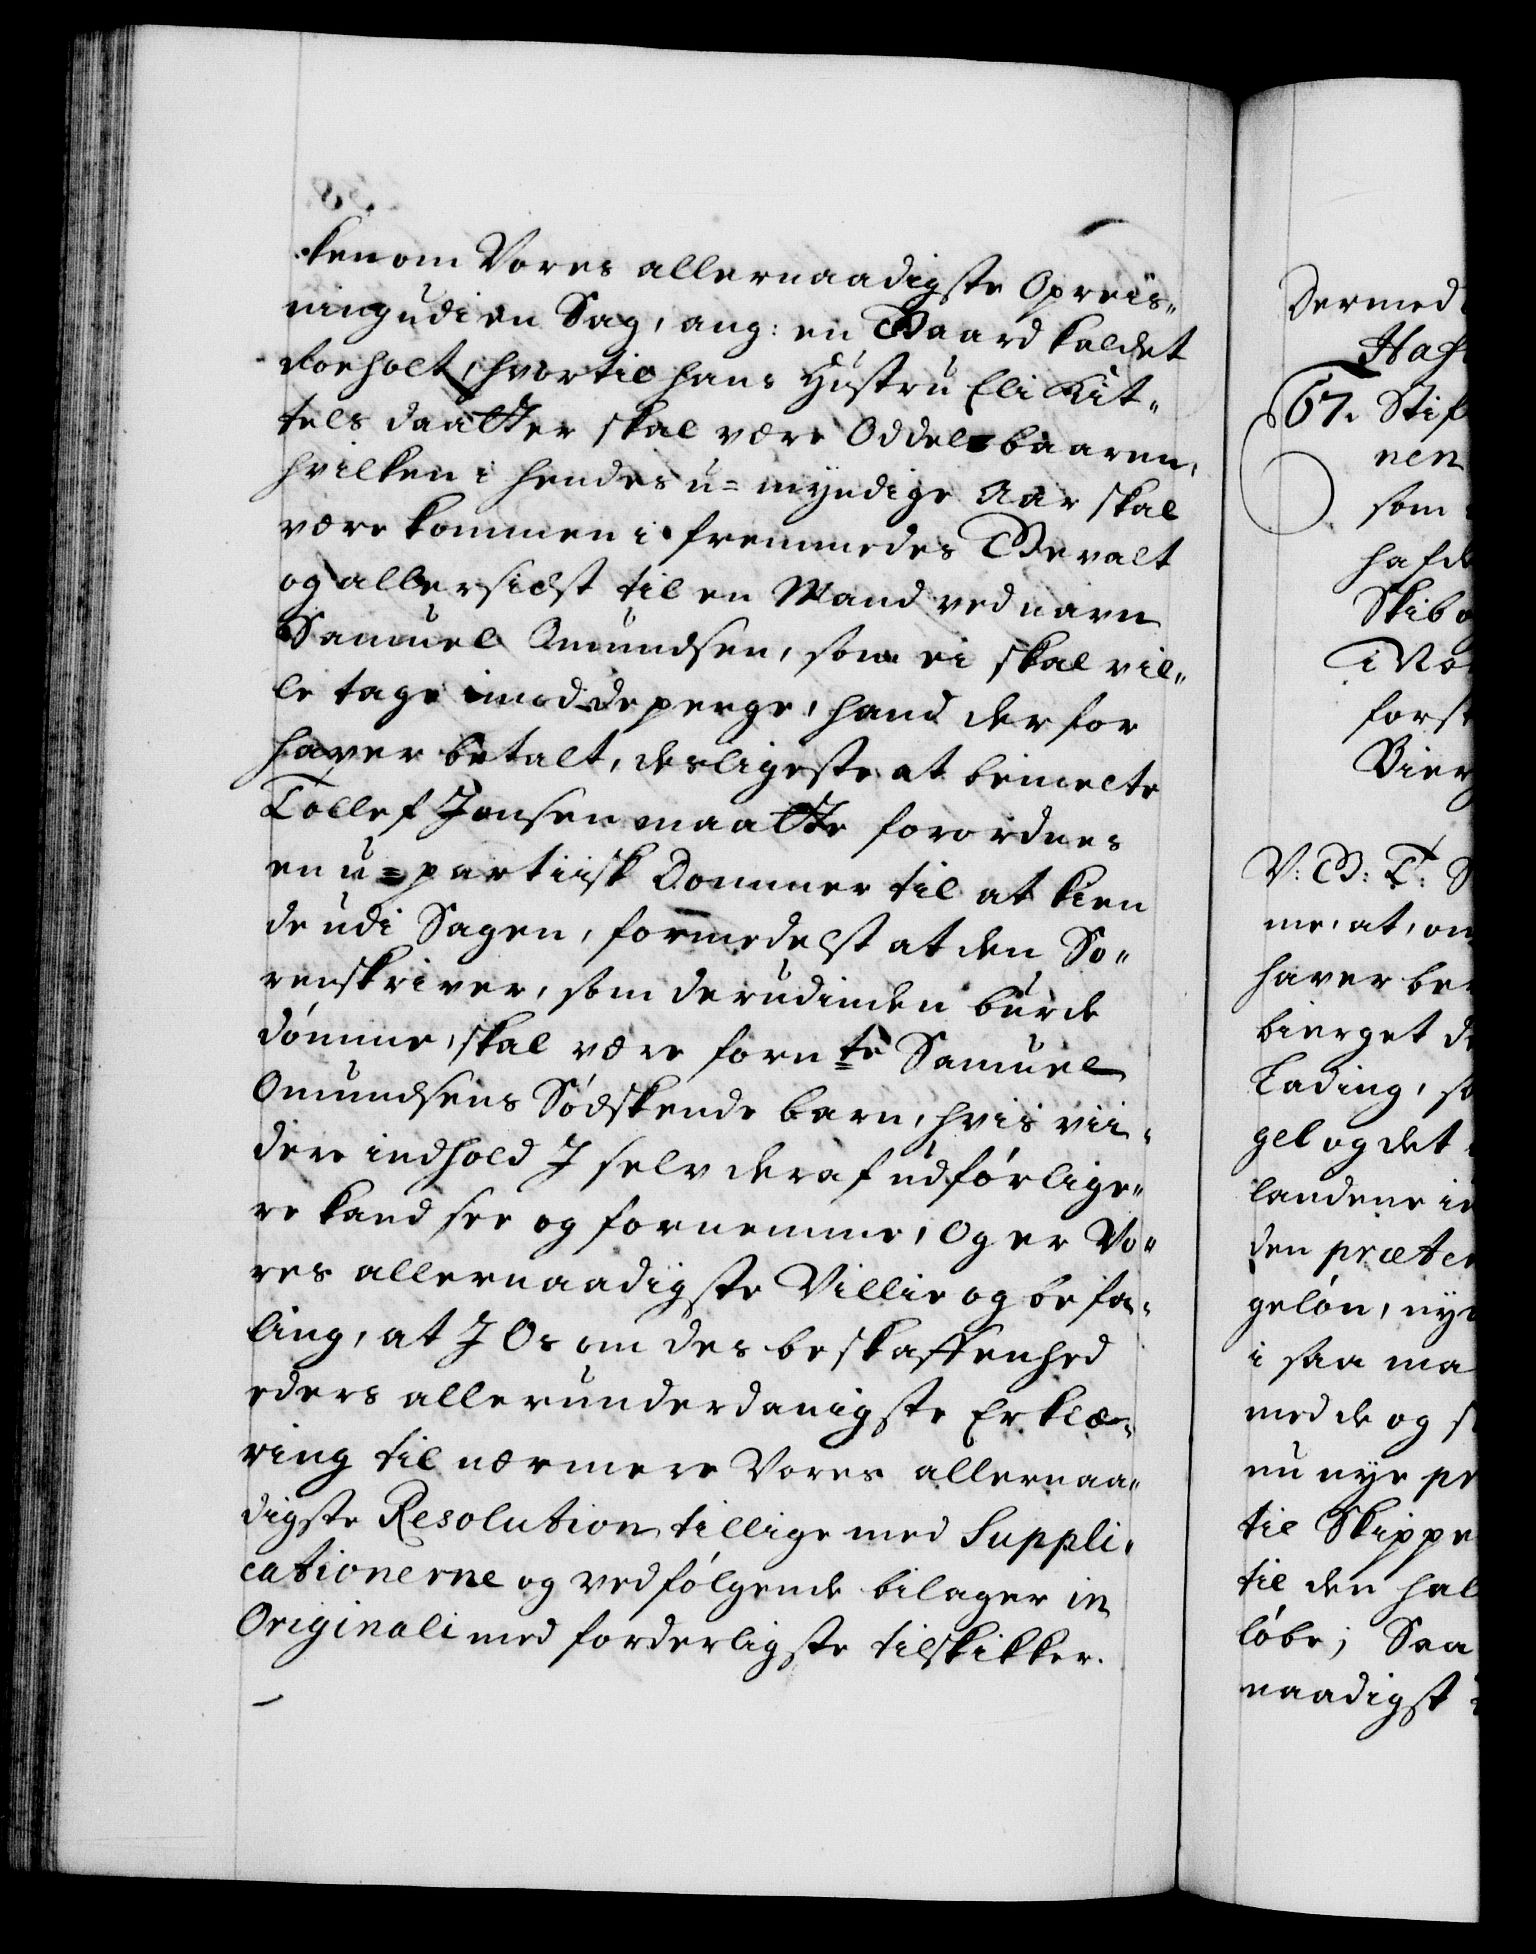 ken om Vores allernaadigste Opreis-
ning udi en Sag, ang: en Gaard kaldet
Roeholt, hvortil hans Hustru Eli Kit-
tels daatter skal være Oddelsbaaren,
hvilken i hendes u=myndige Aar skal
være kommen i fremmedes Gevalt
og allersidst til en Mand ved navn
Samuel Omundsen, som ei skal vil-
le tage imod de penge, hand derfor
haver betalt, desligeste at bemelte
Tollef Jensen maatte forordnes
en u=partiisk Dommer til at kien
de udi Sagen, formedelst at den So-
renskriver, som derudinden burde
dómme, skal være fornte Samuel
Omundsens Södskende barn, hvis vii-
dere indhold I selv deraf udfórlige-
re kand see og fornemme, Og er Vo-
res allernaadigste Villie og befa-
ling, at I Os om des beskaffenhed
eders allerunderdanigste Erklæ-
ring til nærmere Vores allernaa-
digste Resolution tillige med Suppli-
cationerne og vedfólgende bilager in
Originali med forderligste tilskikker.
Dermed
67. Stif
nen
som
hafde
Skib
forst
Bier
V: G: T: S
me, at, om
haver be
bierget d
Lading, so
gel og det
landene i
den præten
gelón, ny
i saa ma
med de og s
nu nye pr
til Skippe
til den hal
lóbe; Saa
naadigst